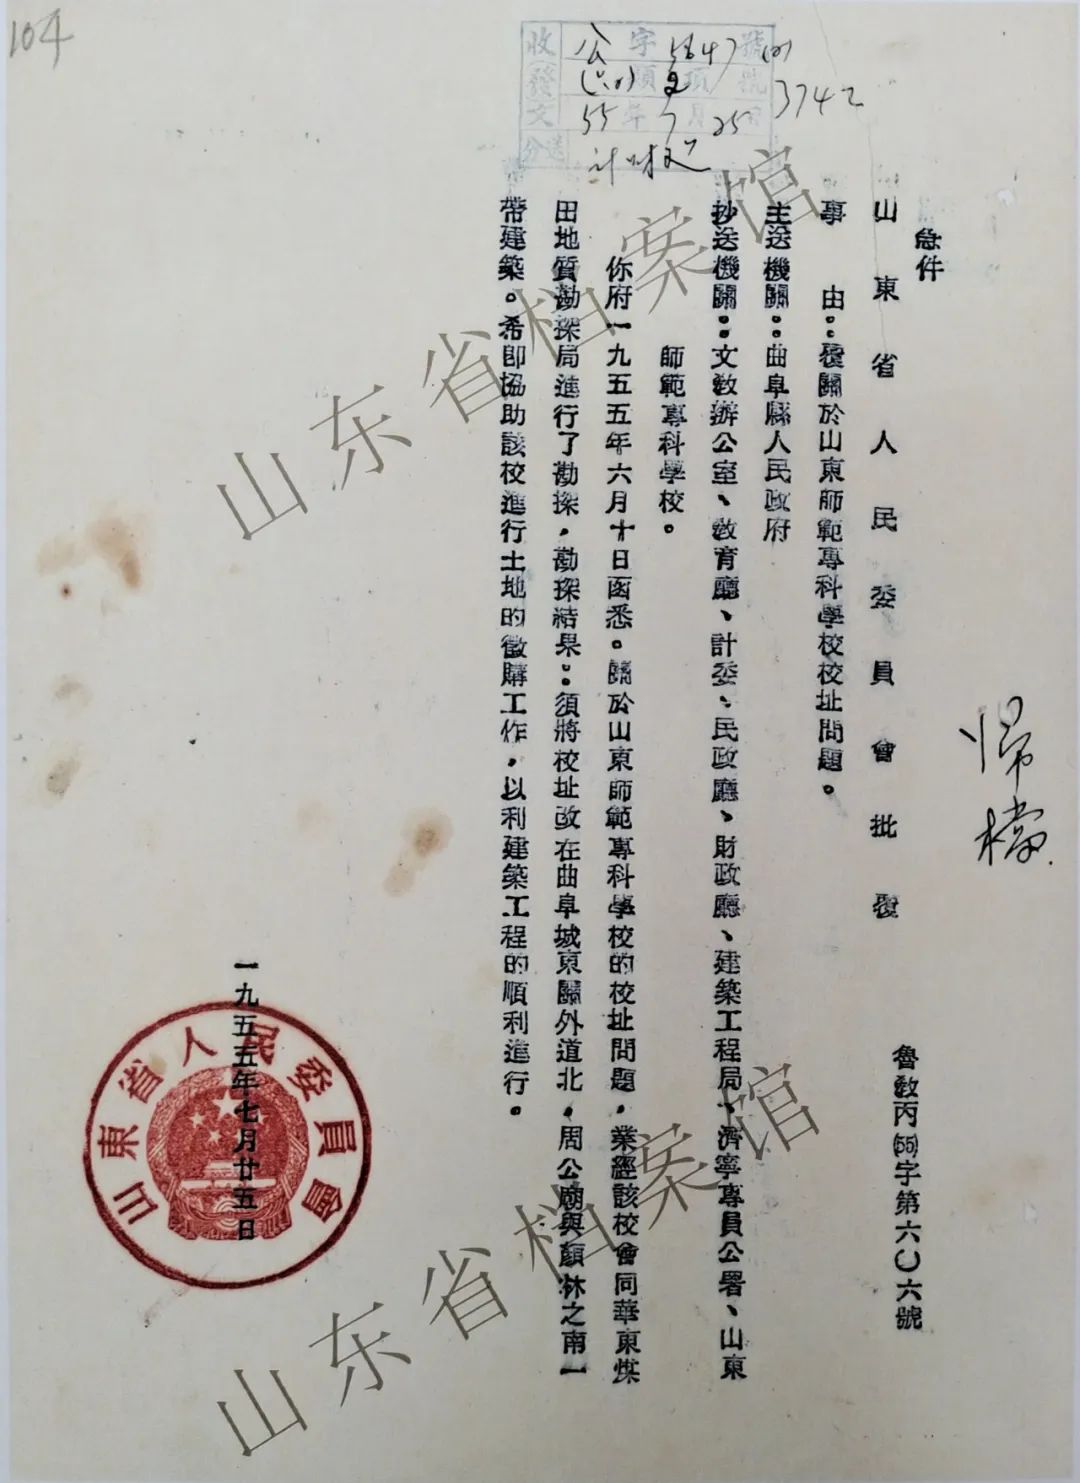 104
收發文
字 號
年 月 日
分送
55 7 25
3742
急件
山東省人民委員會批覆
魯教丙(55)字第六〇六號
事 由：覆關於山東師範專科學校校址問題。
主送機關：曲阜縣人民政府
抄送機關：文教辦公室、教育廳、計委、民政廳、財政廳、建築工程局、濟寧專員公署、山東
師範專科學校。
你府一九五五年六月十日函悉。關於山東師範專科學校的校址問題，業經該校會同華東煤
田地質勘探局進行了勘探，勘探結果：須將校址改在曲阜城東關外道北，周公廟與顏林之南一
帶建築。希即協助該校進行土地的徵購工作，以利建築工程的順利進行。
一九五五年七月廿五日
山東省人民委員會
歸檔
山东省档案馆
山东省档案馆